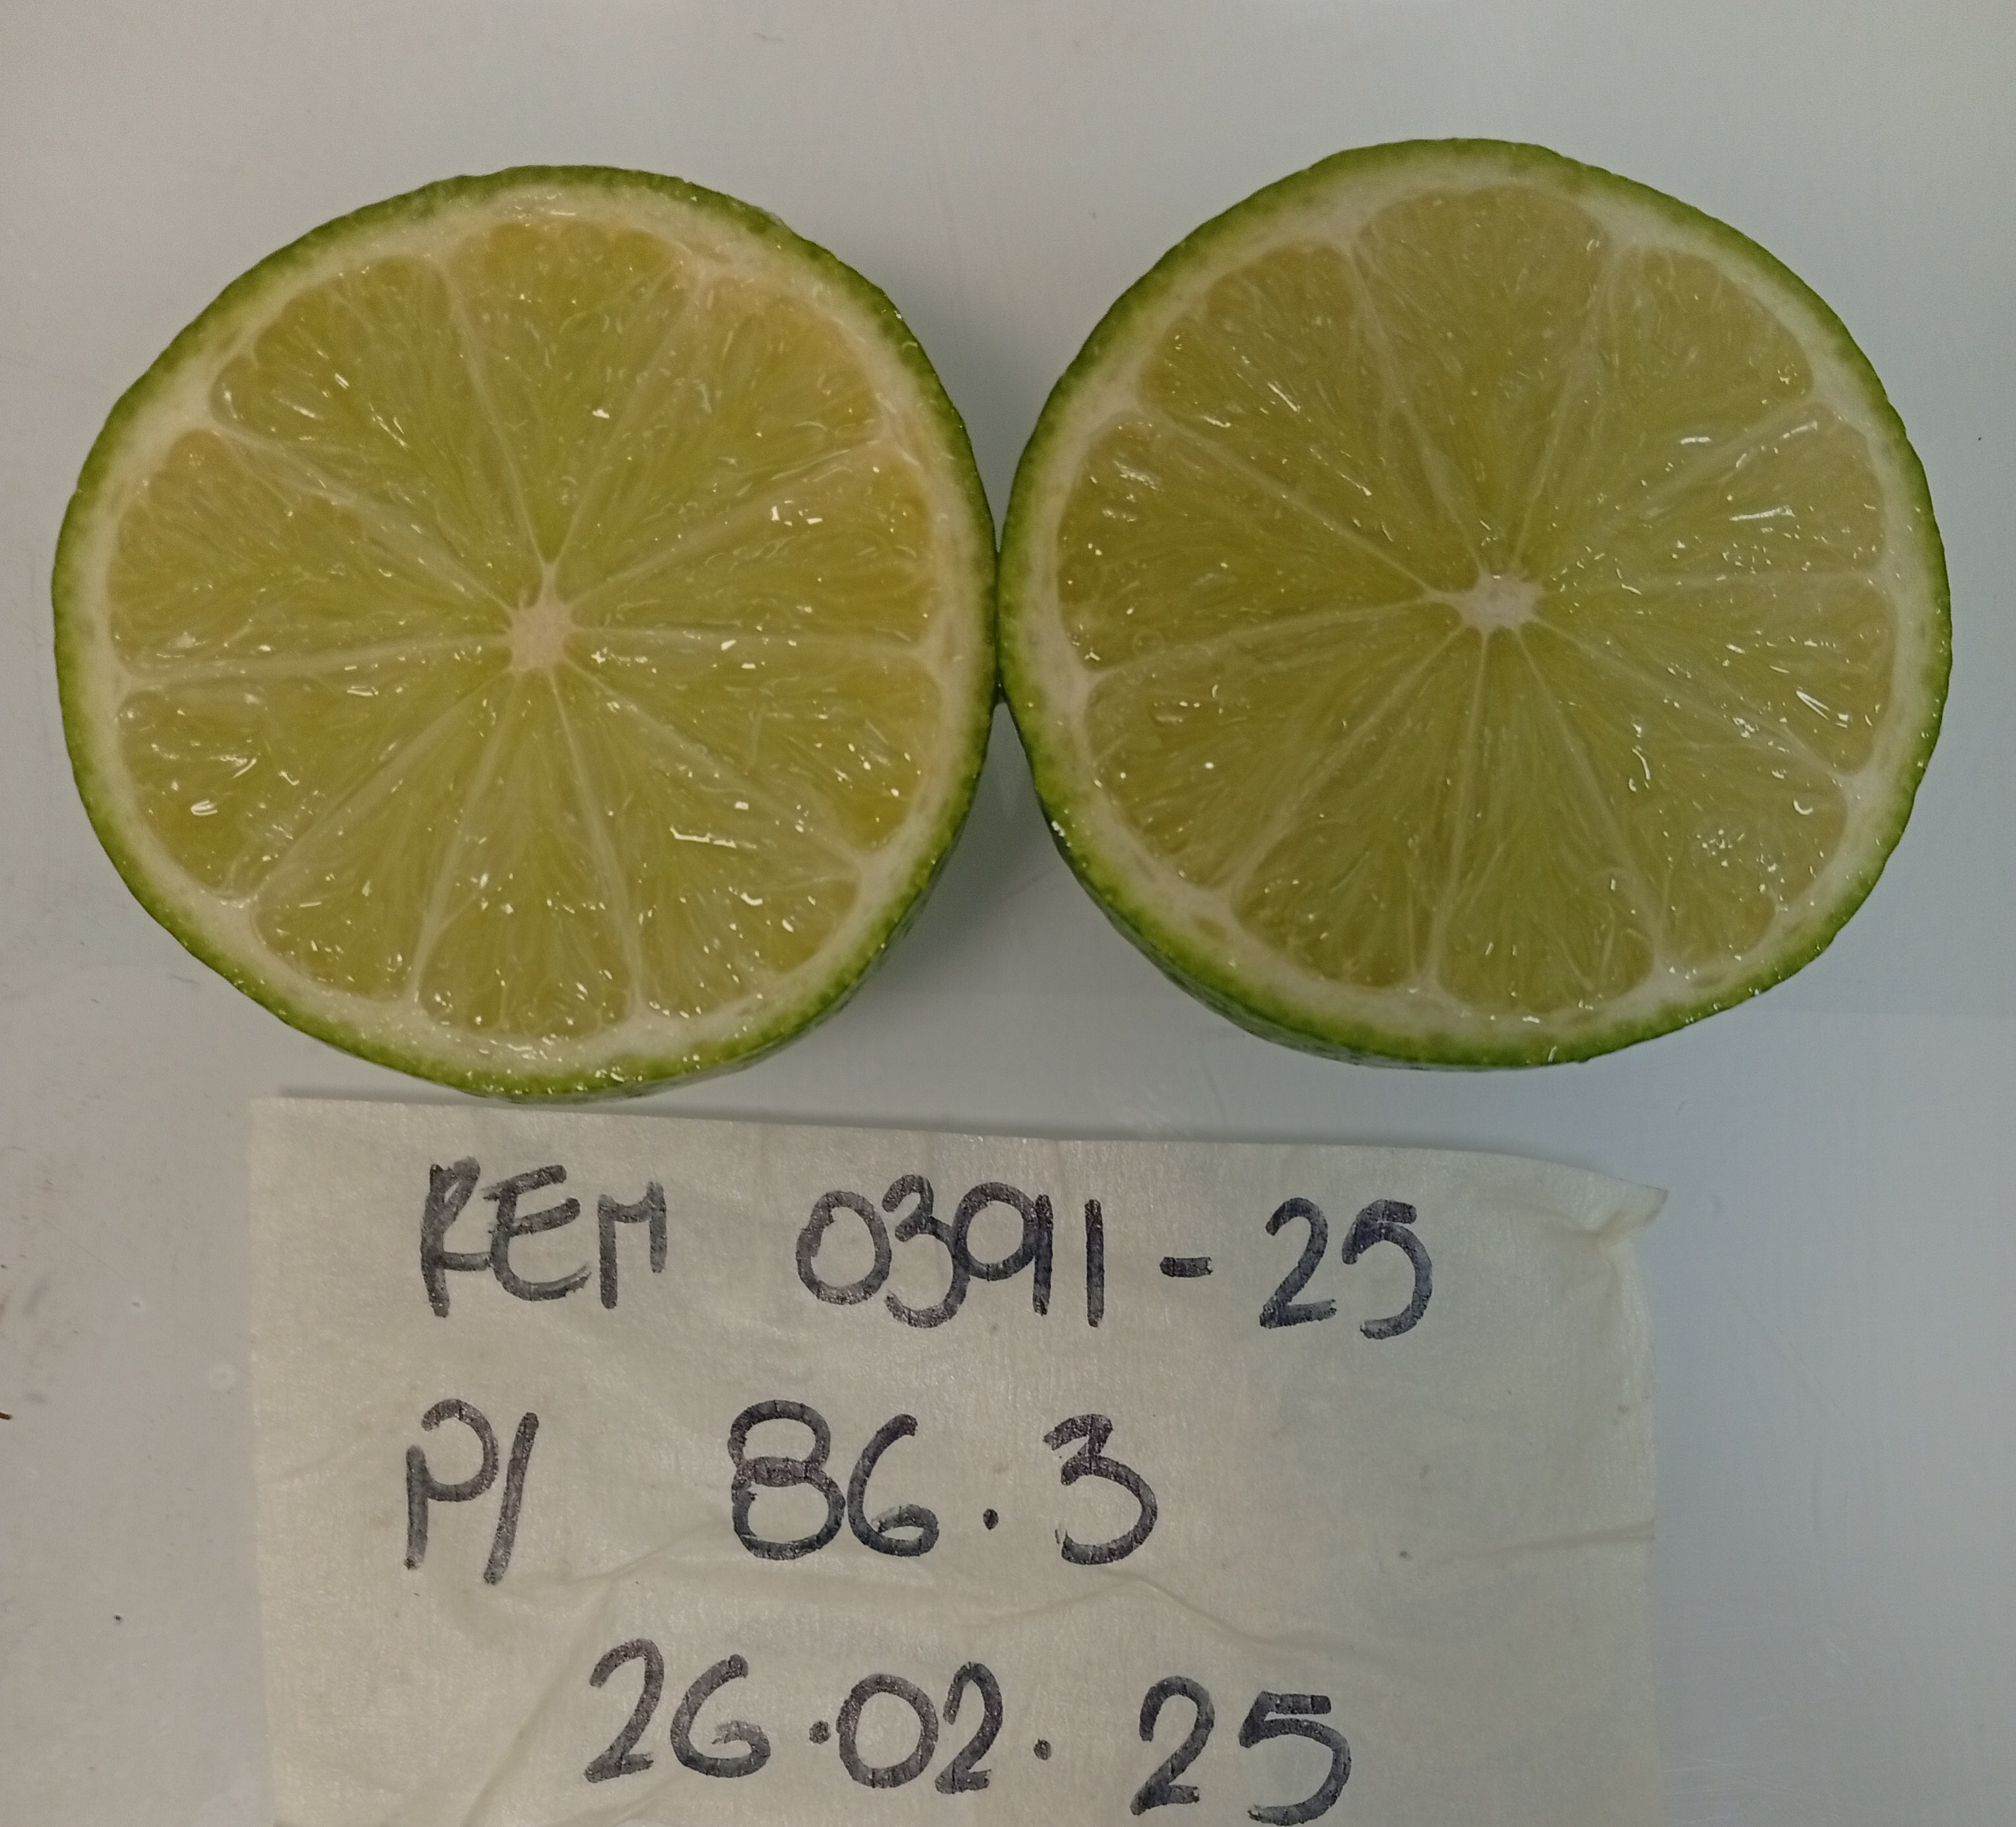 REM 0391-25
P/ 86.3
26.02.25